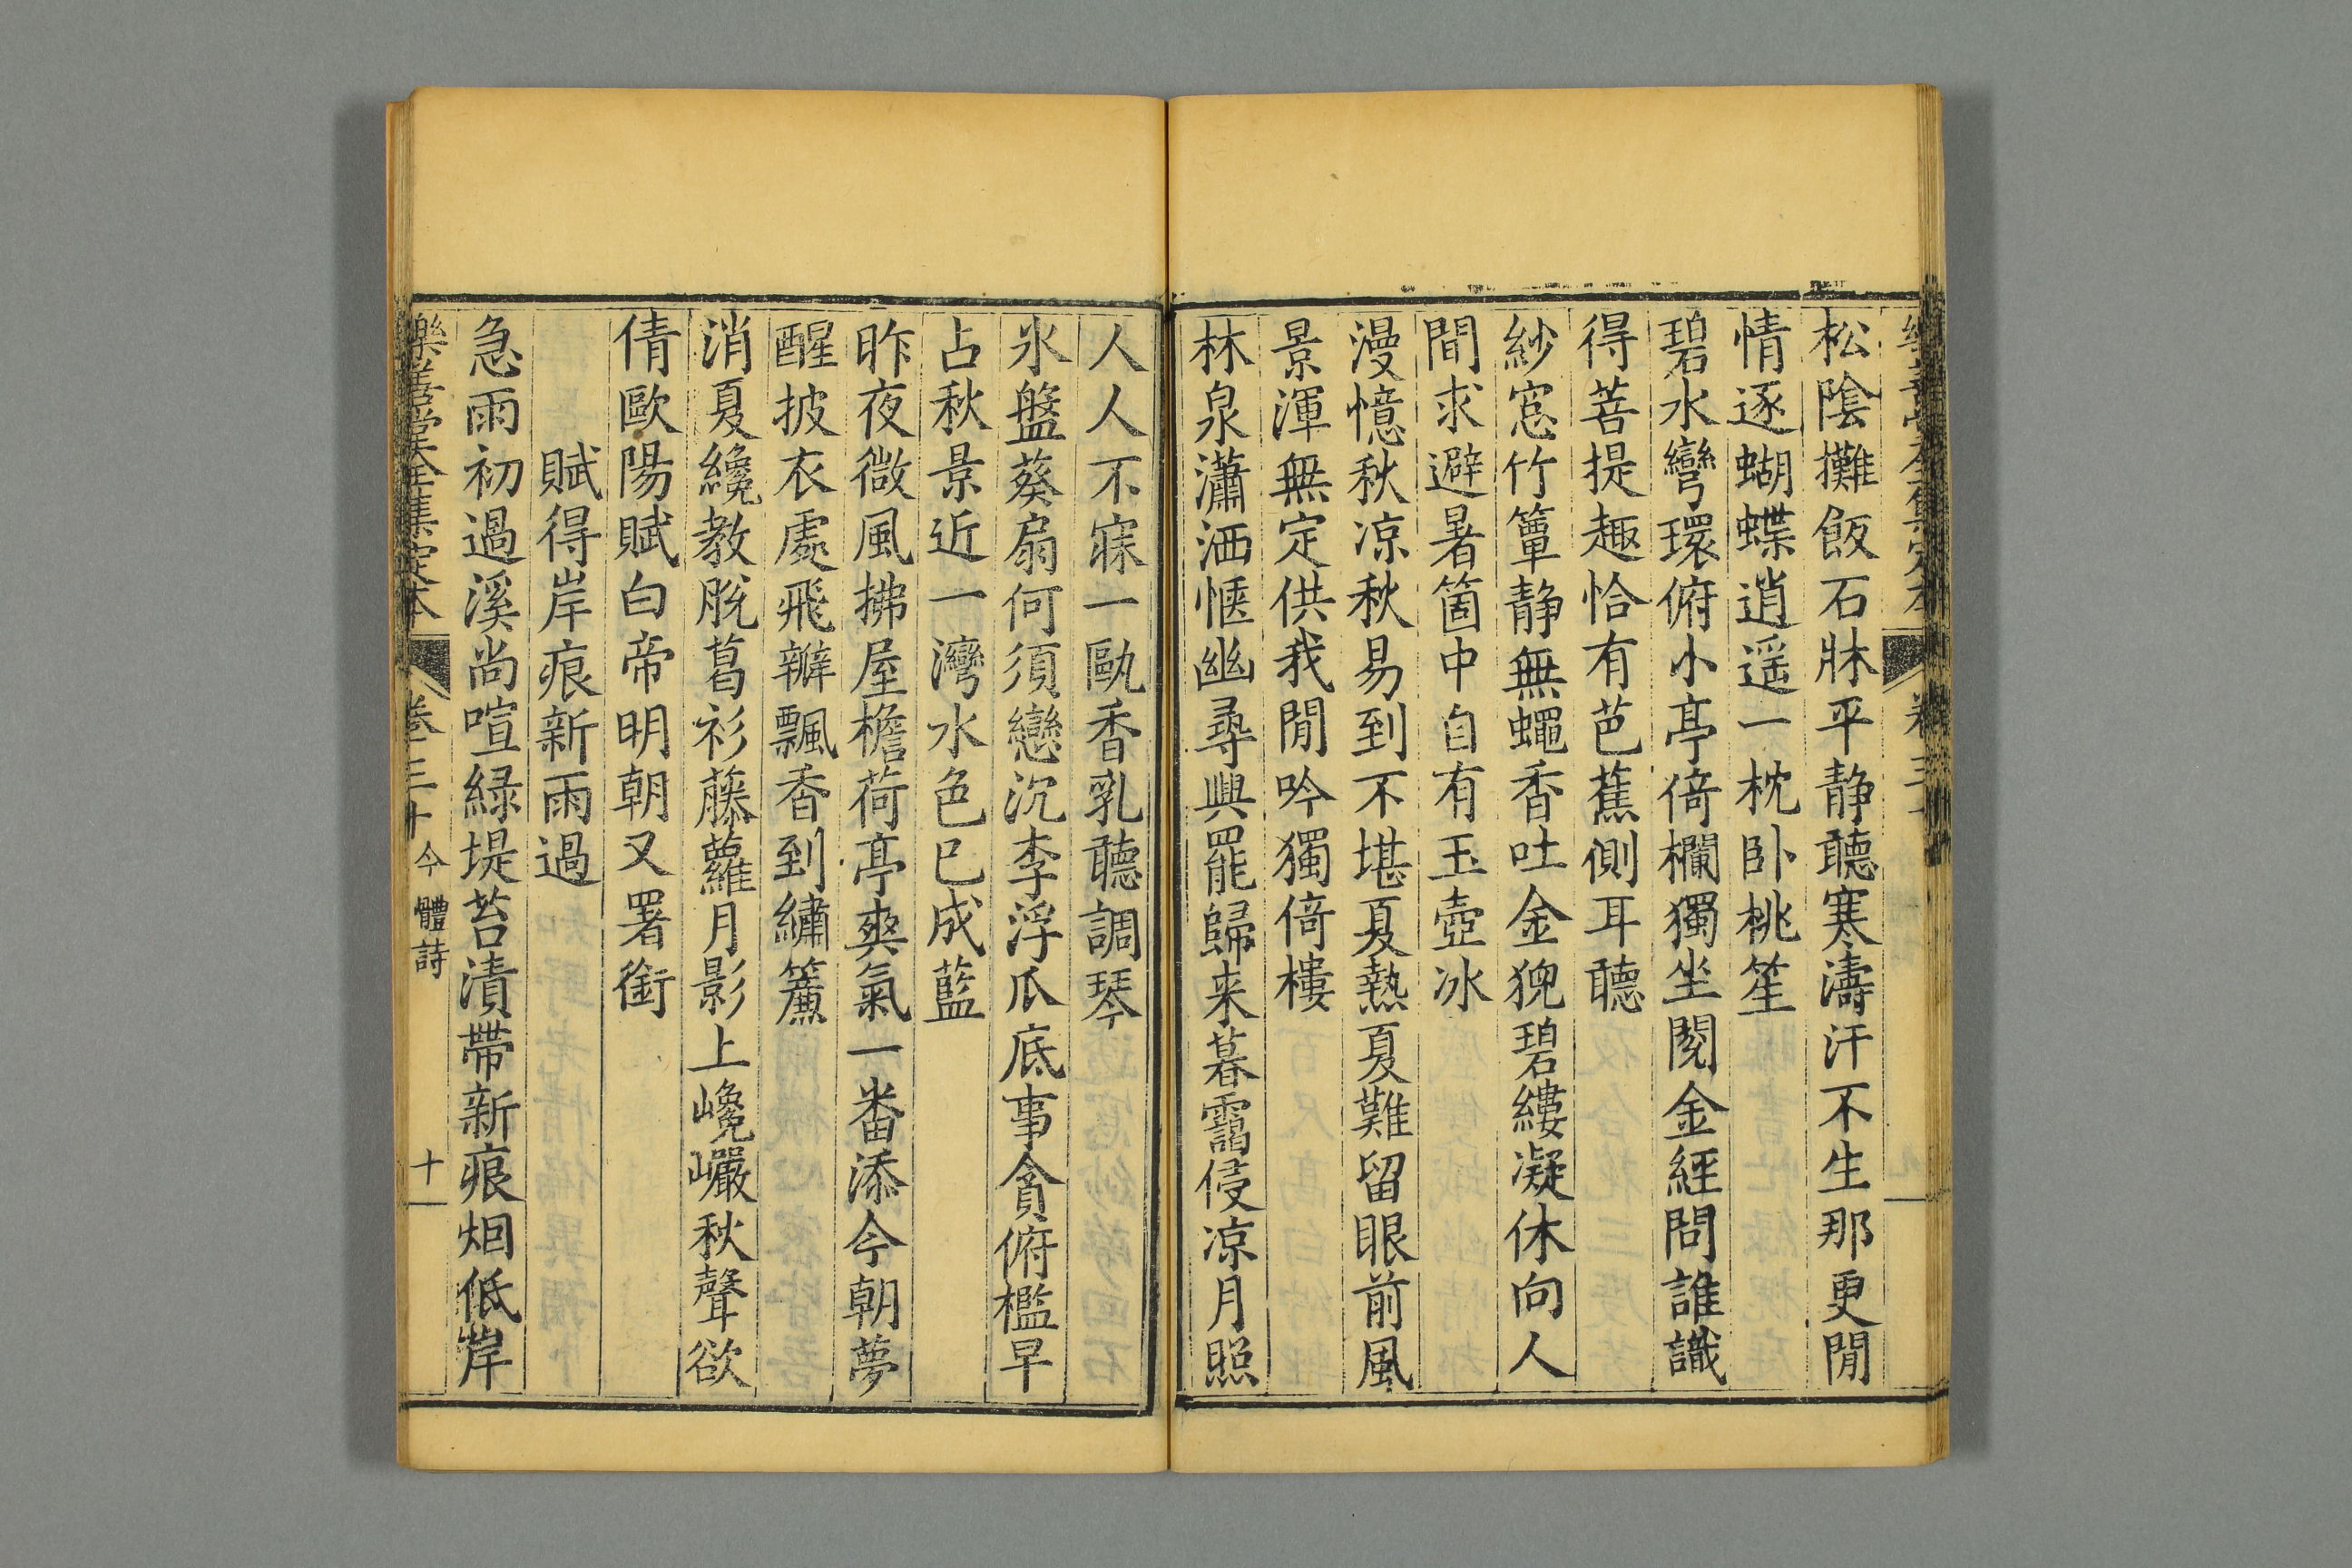 松陰攤飯石牀平静聽寒濤汗不生那更閒
情逐蝴蝶逍遥一枕卧桃笙
碧水彎環俯小亭倚欄獨坐閱金經問誰識
得菩提趣恰有芭蕉側耳聽
紗窓竹簟静無蠅香吐金猊碧縷凝休向人
間求避暑箇中自有玉壺冰
漫憶秋凉秋易到不堪夏熱夏難留眼前風
景渾無定供我閒吟獨倚樓
林泉瀟洒愜幽尋興罷歸来暮靄侵凉月照
人人不寐一甌香乳聽調琴
氷盤葵扇何須戀沉李浮瓜底事貪俯檻早
占秋景近一灣水色已成藍
昨夜微風拂屋檐荷亭爽氣一番添今朝夢
醒披衣處飛瓣飄香到繡簾
消夏纔教脫葛衫藤蘿月影上巉巖秋聲欲
倩歐陽賦白帝明朝又署銜
賦得岸痕新雨過
急雨初過溪尚喧緑堤苔漬帶新痕烟低岸
樂善堂全集定本 卷三十 今體詩 十